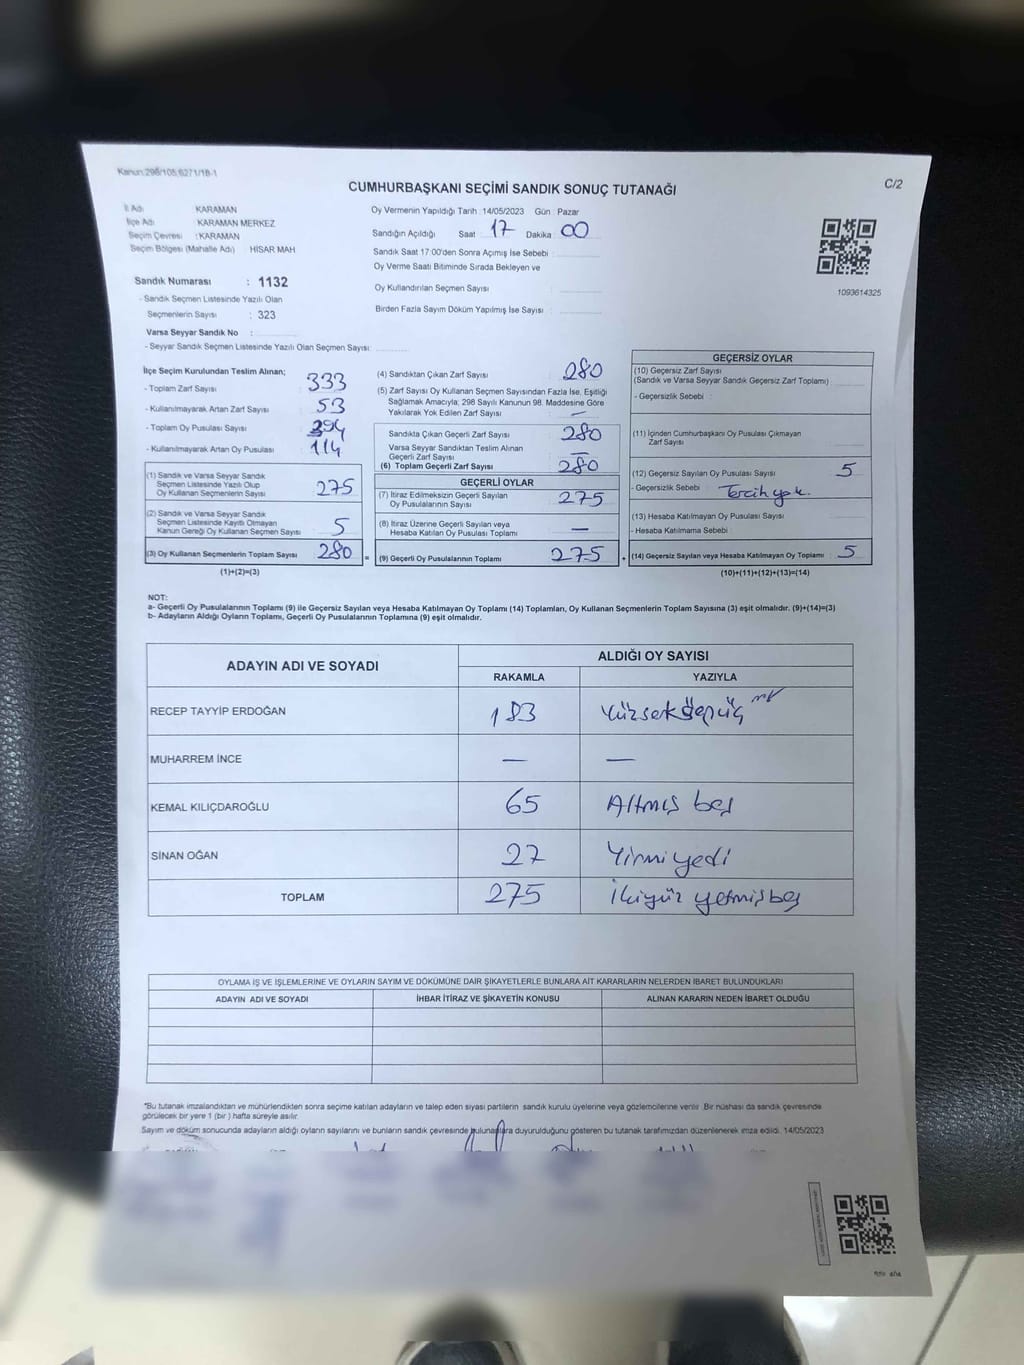 Kanun:298/105;6271/18-1
CUMHURBAŞKANI SEÇİMİ SANDIK SONUÇ TUTANAĞI
C/2
İl Adı KARAMAN
İlçe Adı KARAMAN MERKEZ
Seçim Çevresi : KARAMAN
Seçim Bölgesi (Mahalle Adı) : HİSAR MAH
Oy Vermenin Yapıldığı Tarih : 14/05/2023 Gün : Pazar
Sandığın Açıldığı Saat : 17 Dakika : 00
Sandık Saat 17:00'den Sonra Açımış İse Sebebi :
Oy Verme Saati Bitiminde Sırada Bekleyen ve
Oy Kullandırılan Seçmen Sayısı :
Birden Fazla Sayım Döküm Yapılmış İse Sayısı :
1093614325
Sandık Numarası : 1132
- Sandık Seçmen Listesinde Yazılı Olan
Seçmenlerin Sayısı : 323
Varsa Seyyar Sandık No :
- Seyyar Sandık Seçmen Listesinde Yazılı Olan Seçmen Sayısı:
İlçe Seçim Kurulundan Teslim Alınan;
- Toplam Zarf Sayısı : 333
- Kullanılmayarak Artan Zarf Sayısı : 53
- Toplam Oy Pusulası Sayısı : 394
- Kullanılmayarak Artan Oy Pusulası : 114
(1) Sandık ve Varsa Seyyar Sandık
Seçmen Listesinde Yazılı Olup
Oy Kullanan Seçmenlerin Sayısı : 275
(2) Sandık ve Varsa Seyyar Sandık
Seçmen Listesinde Kayıtlı Olmayan
Kanun Gereği Oy Kullanan Seçmen Sayısı : 5
(3) Oy Kullanan Seçmenlerin Toplam Sayısı : 280 =
(1)+(2)=(3)
(4) Sandıktan Çıkan Zarf Sayısı : 280
(5) Zarf Sayısı Oy Kullanan Seçmen Sayısından Fazla İse, Eşitliği
Sağlamak Amacıyla; 298 Sayılı Kanunun 98. Maddesine Göre
Yakılarak Yok Edilen Zarf Sayısı : —
Sandıkta Çıkan Geçerli Zarf Sayısı : 280
Varsa Seyyar Sandıktan Teslim Alınan
Geçerli Zarf Sayısı : —
(6) Toplam Geçerli Zarf Sayısı : 280
GEÇERLİ OYLAR
(7) İtiraz Edilmeksizin Geçerli Sayılan
Oy Pusulalarının Sayısı : 275
(8) İtiraz Üzerine Geçerli Sayılan veya
Hesaba Katılan Oy Pusulası Toplamı : —
(9) Geçerli Oy Pusulalarının Toplamı : 275 +
GEÇERSİZ OYLAR
(10) Geçersiz Zarf Sayısı
(Sandık ve Varsa Seyyar Sandık Geçersiz Zarf Toplamı) :
- Geçersizlik Sebebi :
(11) İçinden Cumhurbaşkanı Oy Pusulası Çıkmayan
Zarf Sayısı :
(12) Geçersiz Sayılan Oy Pusulası Sayısı : 5
- Geçersizlik Sebebi : Tercih yok.
(13) Hesaba Katılmayan Oy Pusulası Sayısı :
- Hesaba Katılmama Sebebi :
(14) Geçersiz Sayılan veya Hesaba Katılmayan Oy Toplamı : 5
(10)+(11)+(12)+(13)=(14)
NOT:
a- Geçerli Oy Pusulalarının Toplamı (9) ile Geçersiz Sayılan veya Hesaba Katılmayan Oy Toplamı (14) Toplamları, Oy Kullanan Seçmenlerin Toplam Sayısına (3) eşit olmalıdır. (9)+(14)=(3)
b- Adayların Aldığı Oyların Toplamı, Geçerli Oy Pusulalarının Toplamına (9) eşit olmalıdır.
ADAYIN ADI VE SOYADI ALDIĞI OY SAYISI
RAKAMLA YAZIYLA
RECEP TAYYİP ERDOĞAN 183 Yüzseksenüç
MUHARREM İNCE — —
KEMAL KILIÇDAROĞLU 65 Altmış beş
SİNAN OĞAN 27 Yirmi yedi
TOPLAM 275 İkiyüz yetmişbeş
OYLAMA İŞ VE İŞLEMLERİNE VE OYLARIN SAYIM VE DÖKÜMÜNE DAİR ŞİKAYETLERLE BUNLARA AİT KARARLARIN NELERDEN İBARET BULUNDUKLARI
ADAYIN ADI VE SOYADI İHBAR İTİRAZ VE ŞİKAYETİN KONUSU ALINAN KARARIN NEDEN İBARET OLDUĞU
*Bu tutanak imzalandıktan ve mühürlendikten sonra seçime katılan adayların ve talep eden siyasi partilerin sandık kurulu üyelerine veya gözlemcilerine verilir. Bir nüshası da sandık çevresinde
görülecek bir yere 1 (bir) hafta süreyle asılır.
Sayım ve döküm sonucunda adayların aldığı oyların sayılarını ve bunların sandık çevresinde bulunanlara duyurulduğunu gösteren bu tutanak tarafımızdan düzenlenerek imza edildi. 14/05/2023